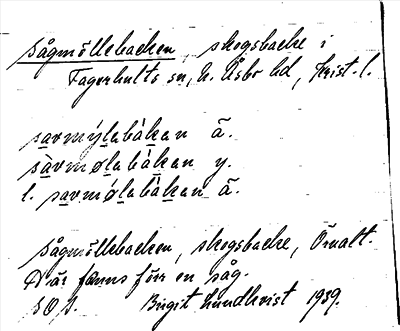 Sågmöllebacken, skogsbacke i
Fagerhults sn, N. Åsbo hd, Krist. l.
savmýlabàkan ä.
sàvmølabàkan y.
l. savmǿlabàkan ä.
Sågmöllebacken, skogsbacke, Örualt.
Där fanns förr en såg.
Birgit Lundkvist 1939.